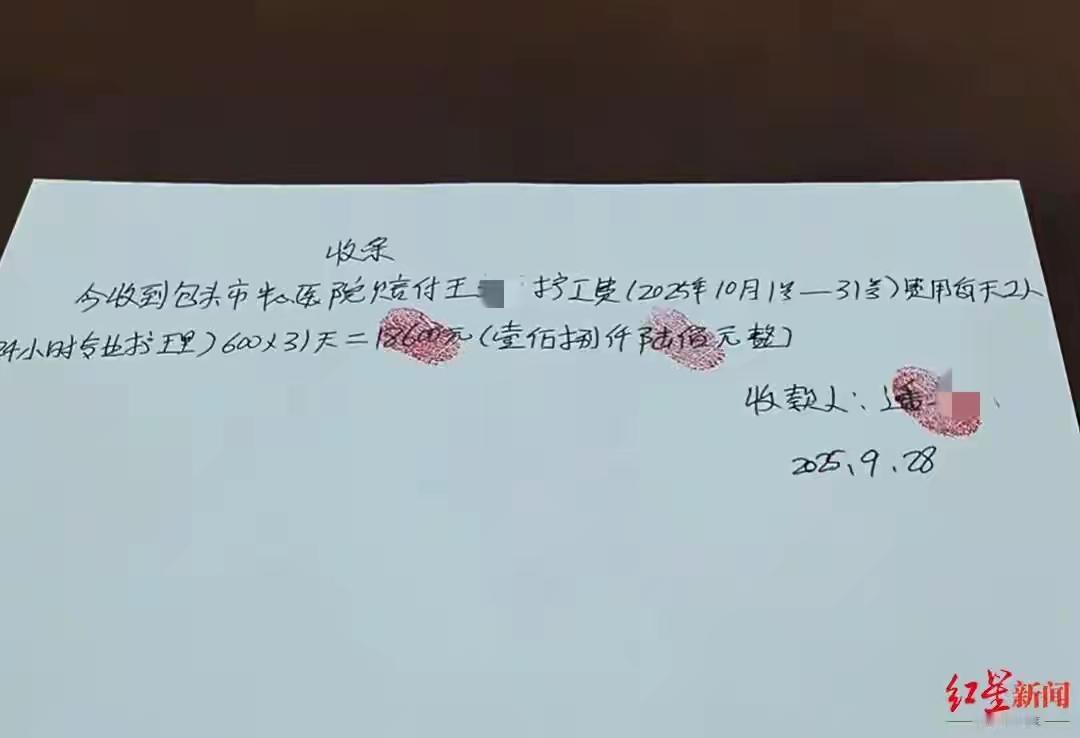 收条
今收到包头市中心医院赔付王 护工费(2025年10月1号—31号)费用每天2人
24小时专业护理)600×31天=18600元(壹佰捌仟陆佰元整)
收款人:
2025、9、28
红星新闻